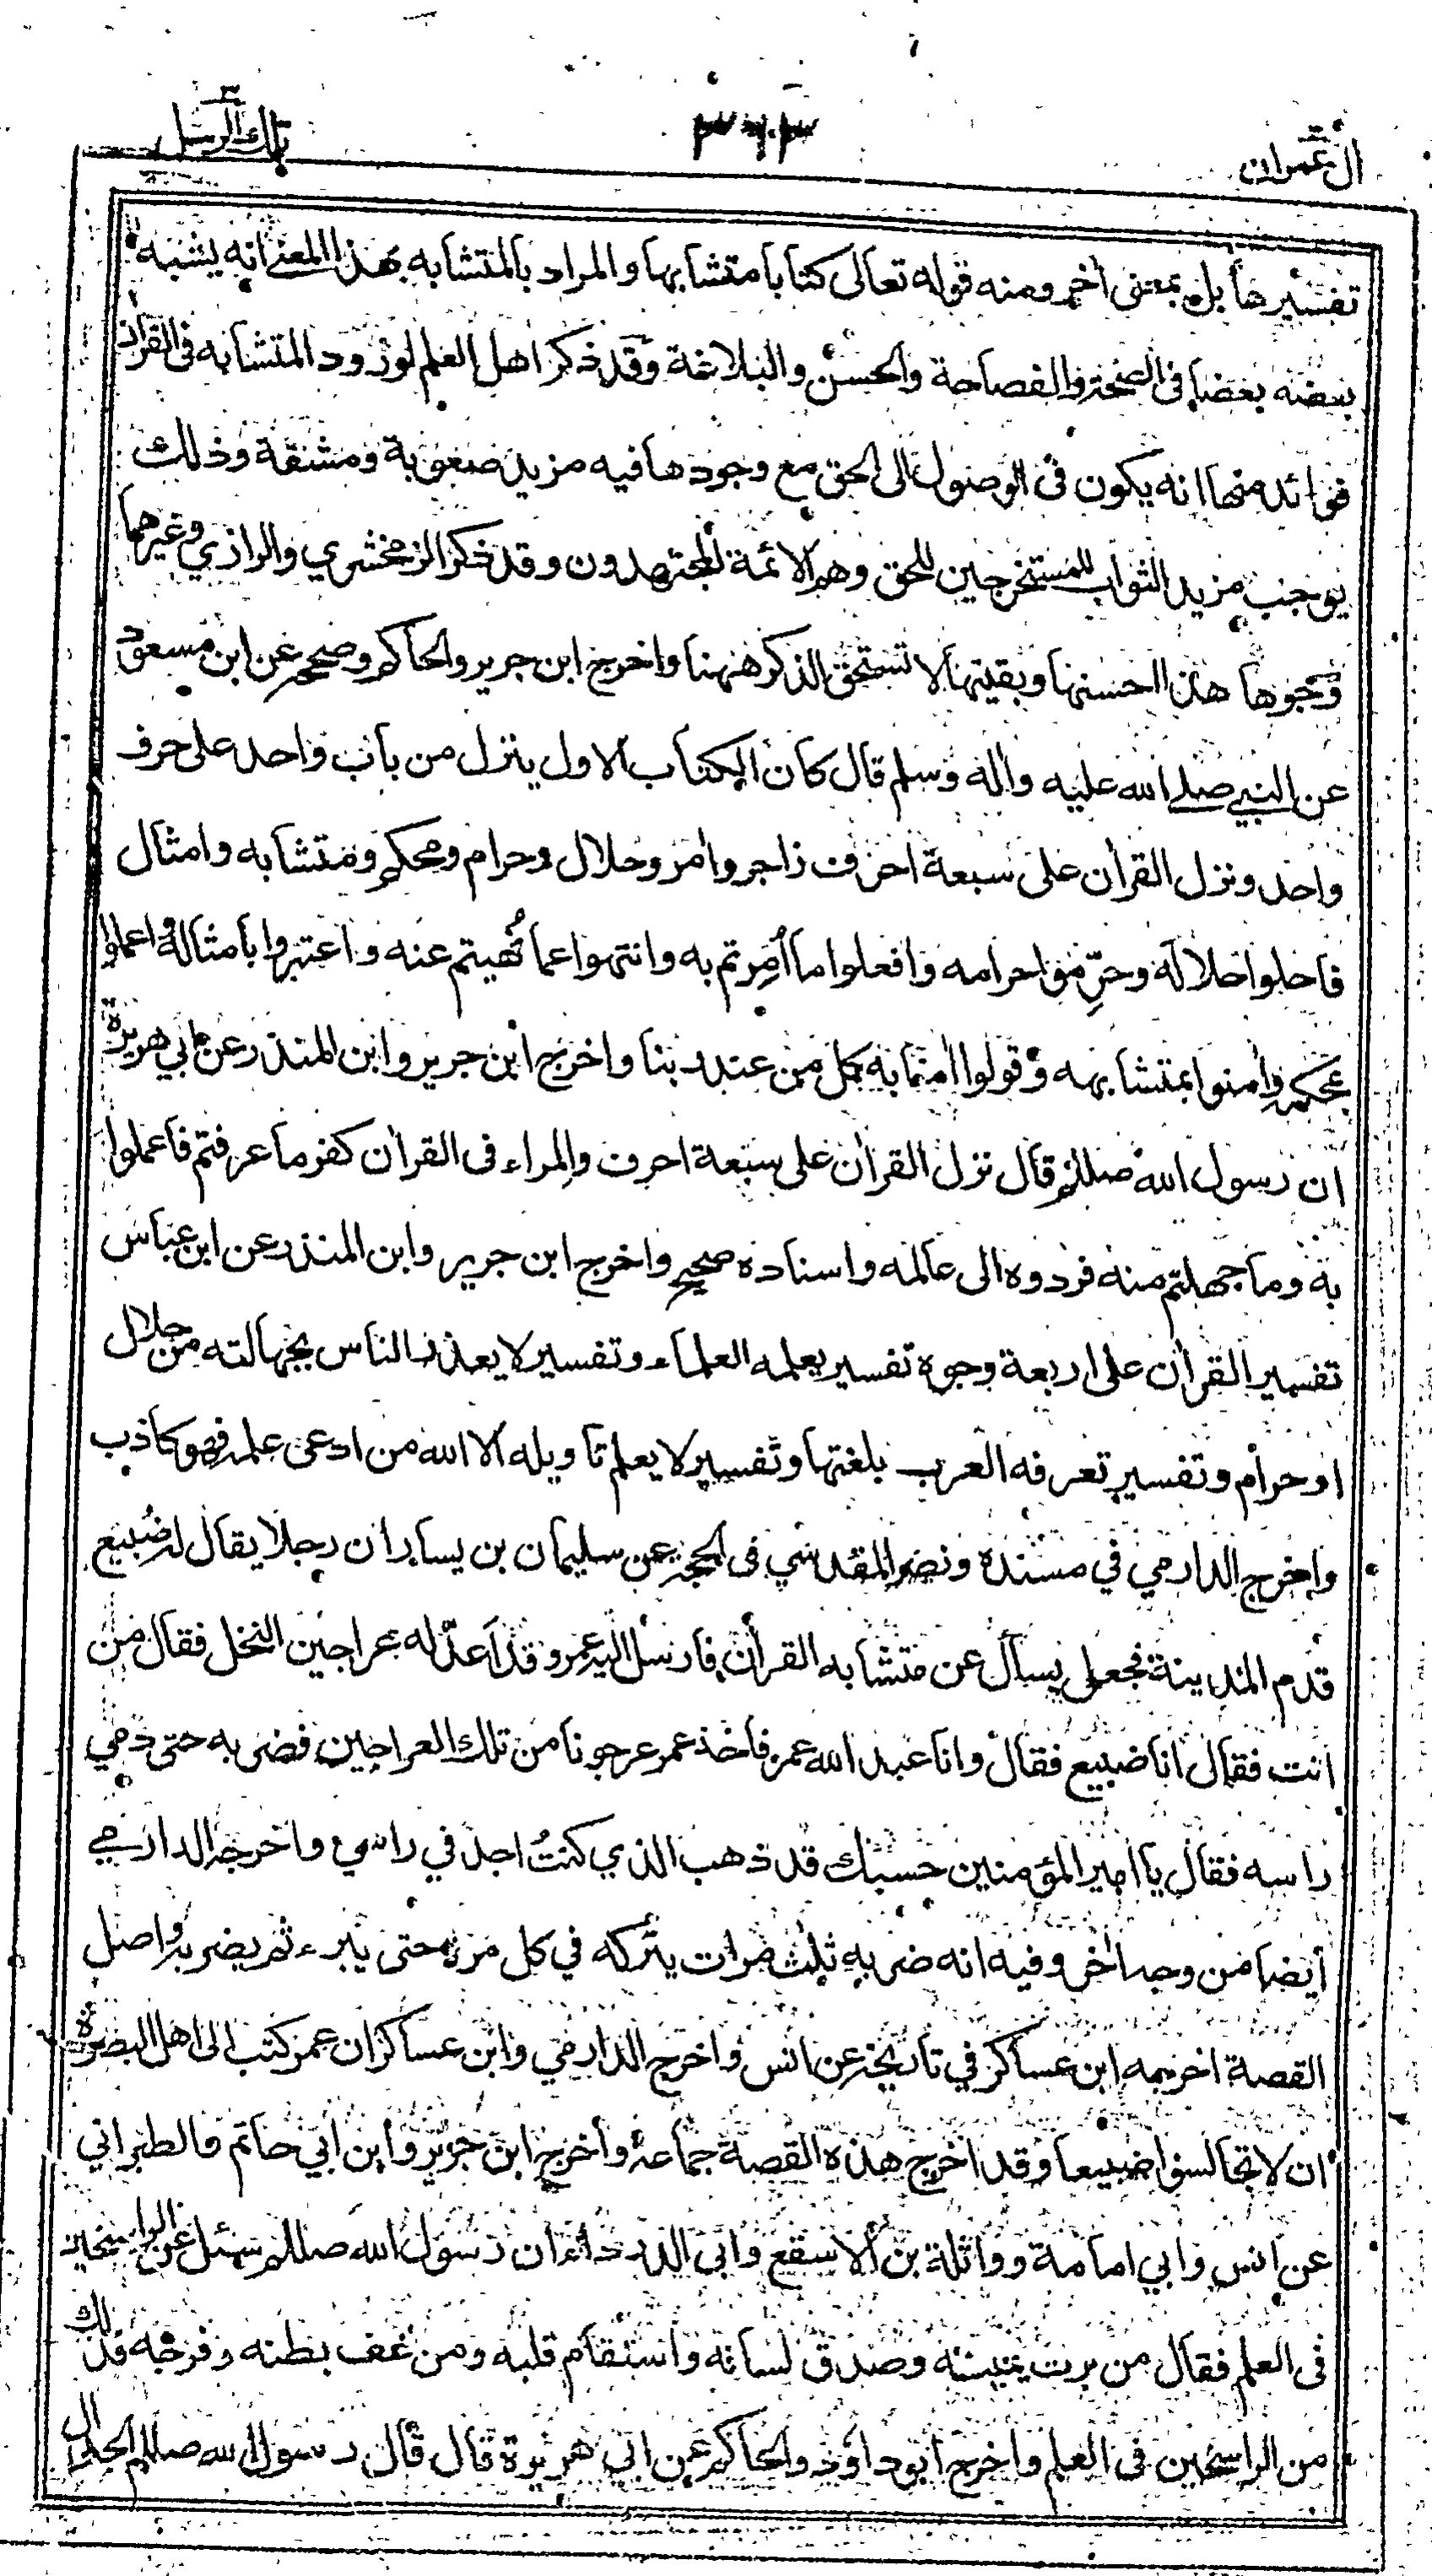 آل عمران
٣٦٣
تلك الرسل ٣
تفسيرها بل بمعنى اخر ومنه قوله تعالى كتابا متشابها والمراد بالمتشابه بهذا المعنى انه يشبه
بعضه بعضا فى الصحة والفصاحة والحسن والبلاغة وقد ذكر اهل العلم لورود المتشابه فى القران
فوائد منها انه يكون فى الوصول الى الحق مع وجودها فيه مزيد صعوبة ومشقة وذلك
يوجب مزيد الثواب للمستخرجين للحق وهم الائمة المجتهدون وقد ذكر الزمخشري والرازي وغيرهما
وجوها هذا احسنها وبقيتها لا تستحق الذكر ههنا واخرج ابن جرير والحاكم وصححه عن ابن مسعود
عن النبي صلى الله عليه واله وسلم قال كان الكتاب الاول ينزل من باب واحد على حرف
واحد ونزل القران على سبعة احرف زاجر وامر وحلال وحرام ومحكم ومتشابه وامثال
فاحلوا حلاله وحرّموا حرامه وافعلوا ما أُمِرتم به وانتهوا عما نُهيتم عنه واعتبروا بامثاله واعملوا
بمحكمه وامنوا بمتشابهه وقولوا امنا به كل من عند ربنا واخرج ابن جرير وابن المنذر عن ابي هريرة
ان رسول الله صللم قال نزل القران على سبعة احرف والمراء فى القران كفر ما عرفتم فاعملوا
به وما جهلتم منه فردوه الى عالمه واسناده صحيح واخرج ابن جرير وابن المنذر عن ابن عباس
تفسير القران على اربعة وجوه تفسير يعلمه العلماء وتفسير لا يعذر الناس بجهالته من حلال
او حرام وتفسير تعرفه العرب بلغتها وتفسير لا يعلم تاويله الا الله من ادعى علمه فهو كاذب
واخرج الدارمي في مسنده ونصر المقدسي فى الحجة عن سليمان بن يسار ان رجلا يقال له ضُبيع
قدم المدينة فجعل يسأل عن متشابه القرأن فارسل اليه عمر وقد اَعدّ له عراجين النخل فقال من
انت فقال انا ضبيع فقال وانا عبد الله عمر فاخذ عمر عرجونا من تلك العراجين فضربه حتى دمي
راسه فقال يا امير المؤمنين حسبك قد ذهب الذي كنتُ اجد في راسي واخرجه الدارمي
ايضا من وجه اخر وفيه انه ضربه ثلث مرات يتركه في كل مرة حتى يبرء ثم يضربه واصل
القصة اخرجه ابن عساكر في تاريخه عن انس واخرج الدارمي وابن عساكر ان عمر كتب الى اهل البصرة
ان لا تجالسوا ضبيعا وقد اخرج هذه القصة جماعة واخرج ابن جرير وابن ابي حاتم والطبراني
عن انس وابي امامة وواثلة بن الاسقع وابى الدرداء ان رسول الله صللم سئل عن الراسخين
فى العلم فقال من برت يمينه وصدق لسانه واستقام قلبه ومن عف بطنه وفرجه فذلك
من الراسخين فى العلم واخرج ابو داود والحاكم عن ابي هريرة قال قال رسول الله صللم الجدال